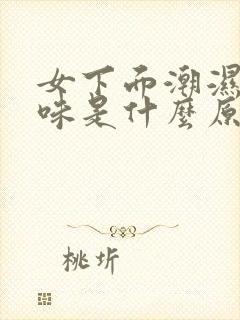 女下面潮濕
味是什麼原
桃圻